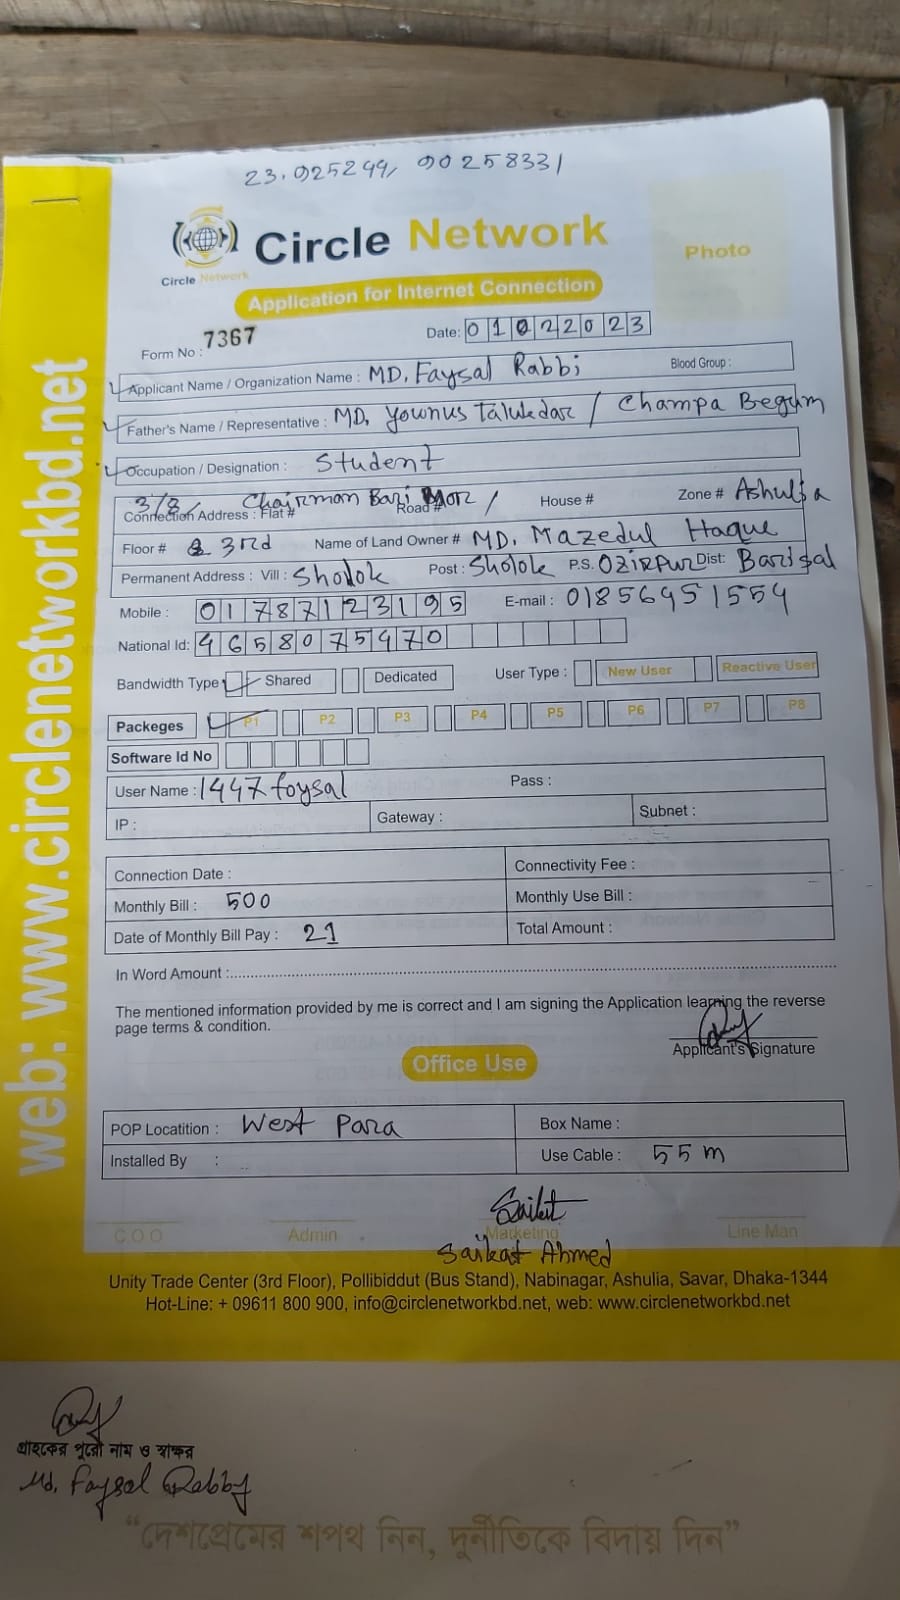 23.925299, 90258331
Circle Network
Circle Network
Photo
Application for Internet Connection
Form No : 7367 Date: 01022023
Applicant Name / Organization Name : MD. Faysal Rabbi Blood Group :
Father's Name / Representative : MD. Yownus Talukdar / Champa Begum
Occupation / Designation : Student
3/8/ Chairman Bari Mor /
Connection Address : Flat # Road # House # Zone # Ashulia
Floor # 3rd Name of Land Owner # MD. Mazedul Haque
Permanent Address : Vill : Sholok Post : Sholok P.S. OZIRPUR Dist: Barisal
Mobile : 01787123195 E-mail : 01856951554
National Id: 4658075470
Bandwidth Type Shared Dedicated User Type : New User Reactive User
Packeges P1 P2 P3 P4 P5 P6 P7 P8
Software Id No
User Name : 1447foysal Pass :
IP : Gateway : Subnet :
Connection Date : Connectivity Fee :
Monthly Bill : 500 Monthly Use Bill :
Date of Monthly Bill Pay : 21 Total Amount :
In Word Amount :
The mentioned information provided by me is correct and I am signing the Application learning the reverse
page terms & condition.
Applicant's Signature
Office Use
POP Locatition : West Para Box Name :
Installed By : Use Cable : 55 m
Saikat
C.O.O Admin Marketing Line Man
Saikat Ahmed
Unity Trade Center (3rd Floor), Pollibiddut (Bus Stand), Nabinagar, Ashulia, Savar, Dhaka-1344
Hot-Line: + 09611 800 900, info@circlenetworkbd.net, web: www.circlenetworkbd.net
web: www.circlenetworkbd.net
গ্রাহকের পুরো নাম ও স্বাক্ষর
Md. Faysal Rabby
“দেশপ্রেমের শপথ নিন, দুর্নীতিকে বিদায় দিন”